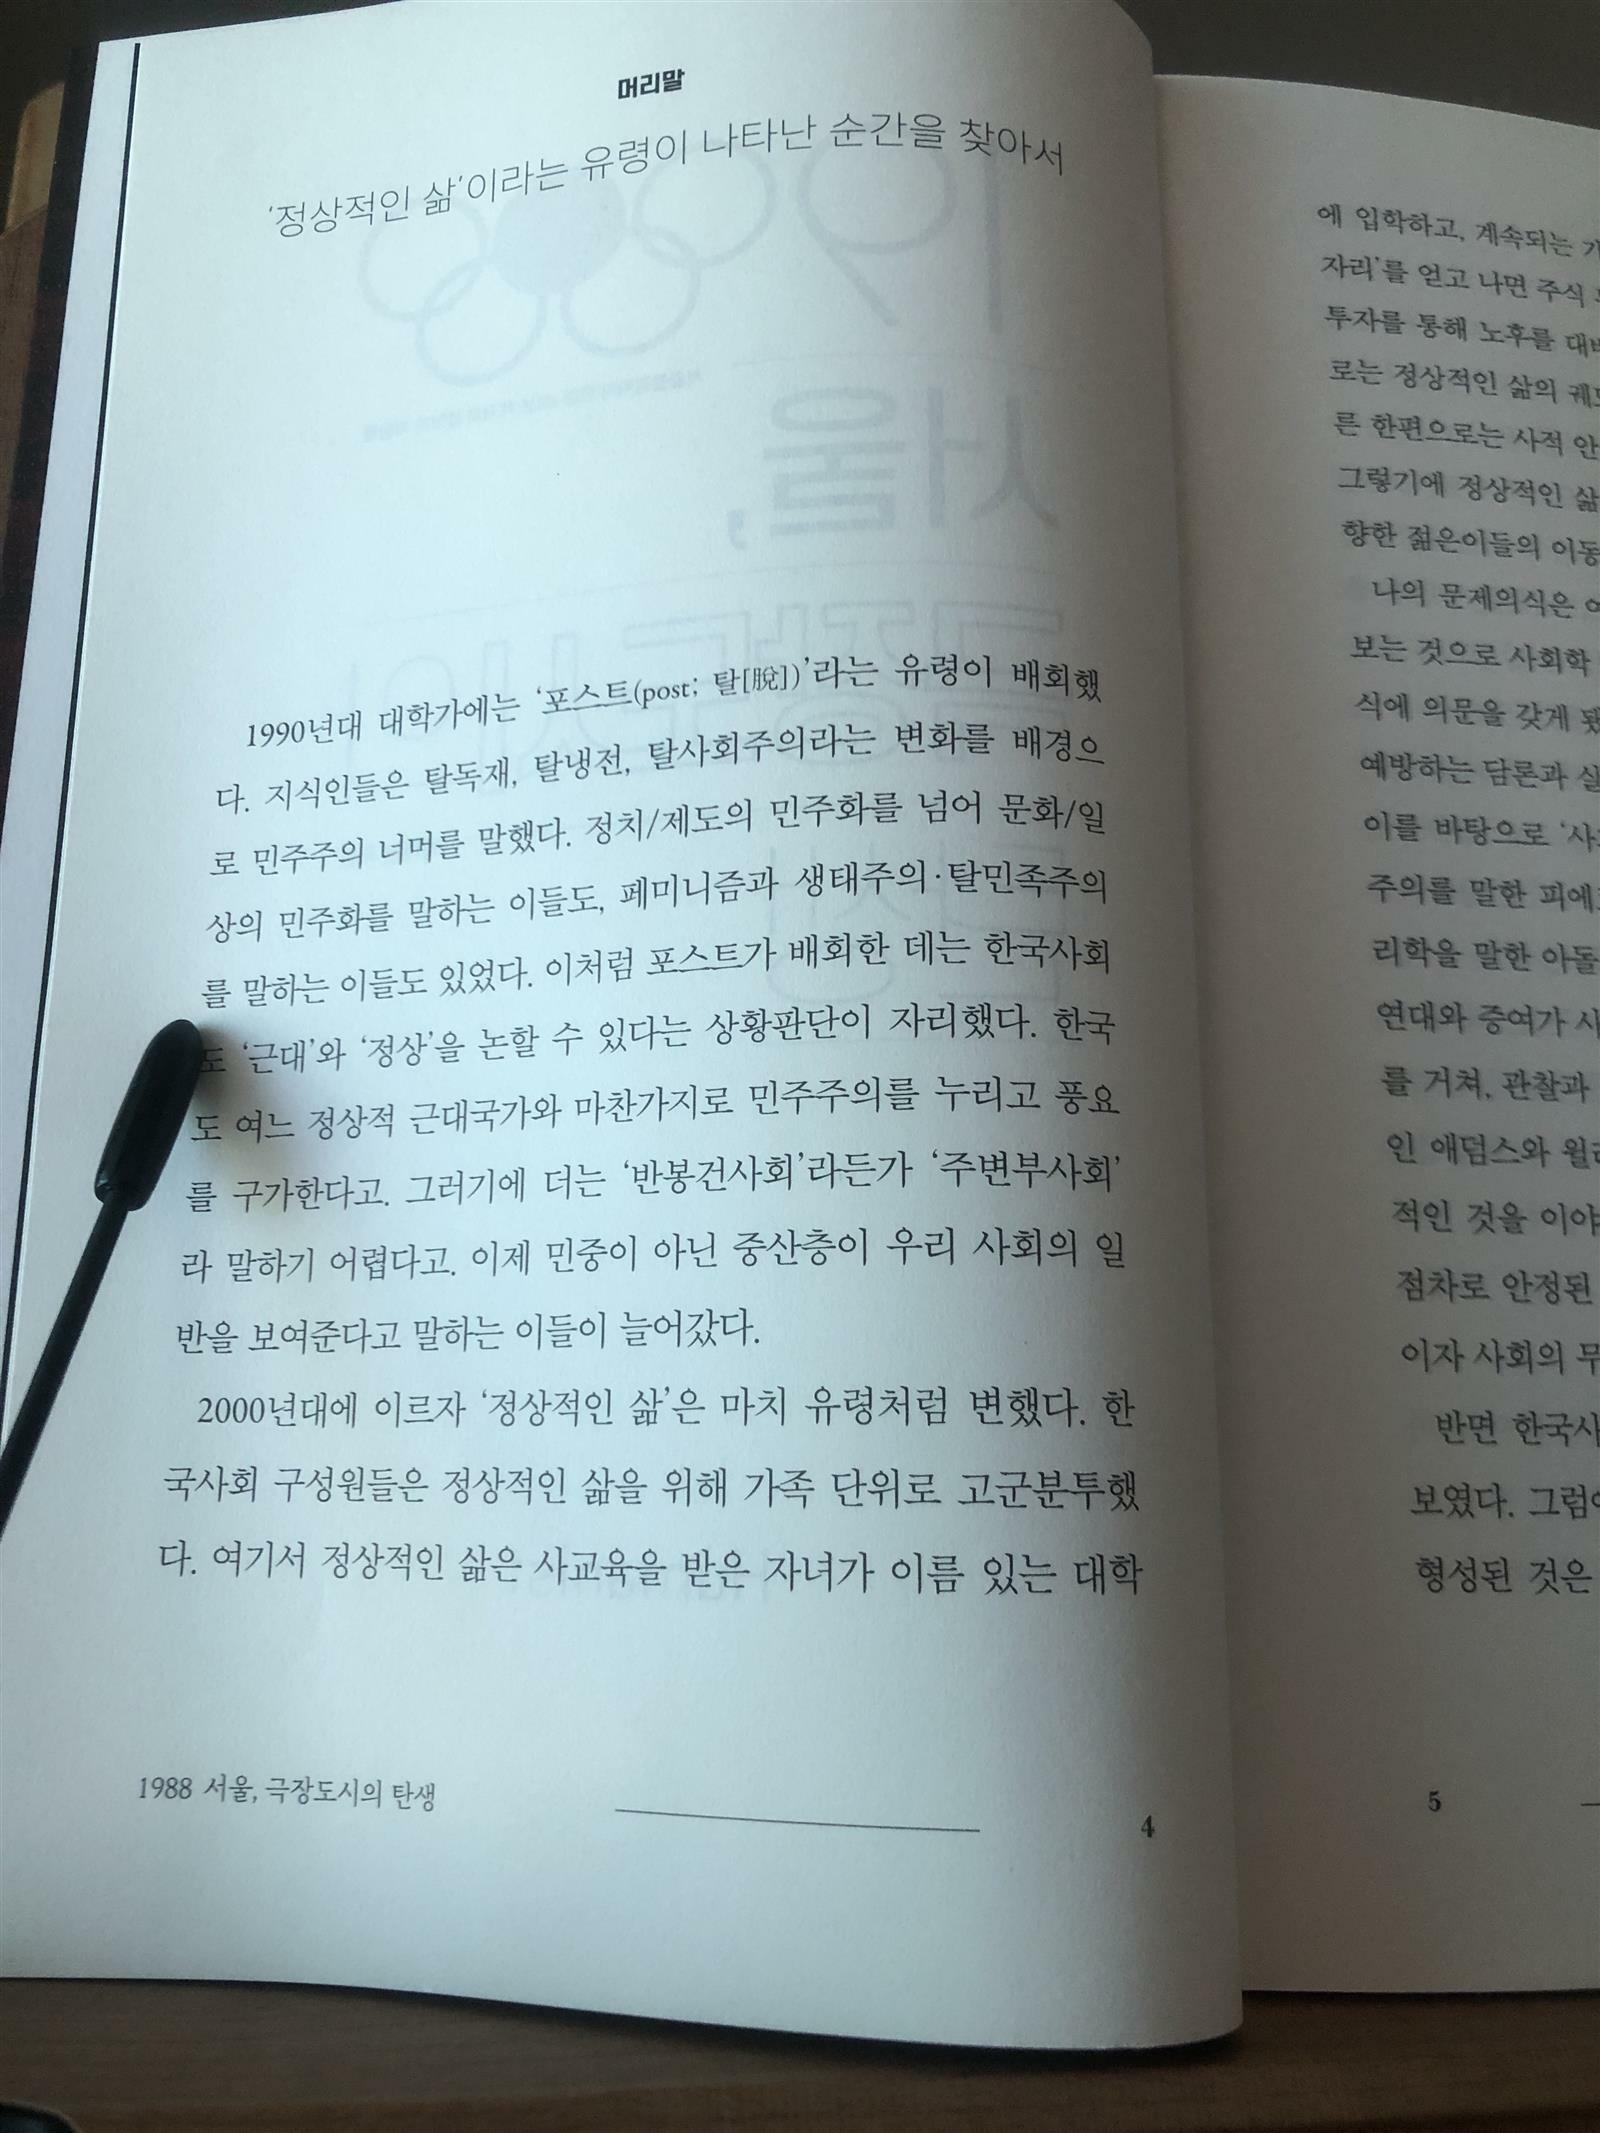 머리말
'정상적인 삶'이라는 유령이 나타난 순간을 찾아서
1990년대 대학가에는 '포스트(post; 탈[脫])'라는 유령이 배회했
다. 지식인들은 탈독재, 탈냉전, 탈사회주의라는 변화를 배경으
로 민주주의 너머를 말했다. 정치/제도의 민주화를 넘어 문화/일
상의 민주화를 말하는 이들도, 페미니즘과 생태주의·탈민족주의
를 말하는 이들도 있었다. 이처럼 포스트가 배회한 데는 한국사회
도 '근대'와 '정상'을 논할 수 있다는 상황판단이 자리했다. 한국
도 여느 정상적 근대국가와 마찬가지로 민주주의를 누리고 풍요
를 구가한다고. 그러기에 더는 '반봉건사회'라든가 '주변부사회'
라 말하기 어렵다고. 이제 민중이 아닌 중산층이 우리 사회의 일
반을 보여준다고 말하는 이들이 늘어갔다.
2000년대에 이르자 '정상적인 삶'은 마치 유령처럼 변했다. 한
국사회 구성원들은 정상적인 삶을 위해 가족 단위로 고군분투했
다. 여기서 정상적인 삶은 사교육을 받은 자녀가 이름 있는 대학
1988 서울, 극장도시의 탄생
4
에 입학하고, 계속되는
자리'를 얻고 나면 주식
투자를 통해 노후를
로는 정상적인 삶의
른 한편으로는 사적
그렇기에 정상적인 삶
향한 젊은이들의
나의 문제의식은
보는 것으로 사회학
식에 의문을 갖게
예방하는 담론과
이를 바탕으로
주의를 말한
리학을 말한
연대와 증여가
를 거쳐, 관찰과
인 애덤스와
적인 것을
점차로 안정된
이자 사회의
반면
보였다.
형성된 것은
5